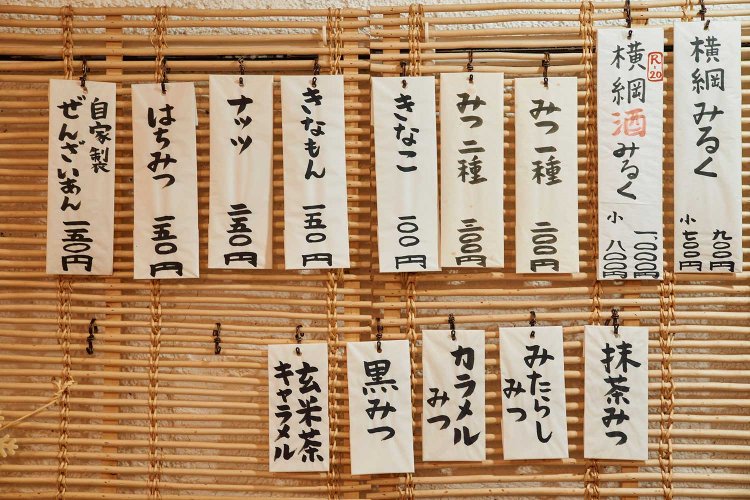 横綱みるく
九〇〇円
小七〇〇円
R-20
横綱酒みるく
一〇〇〇円
小八〇〇円
みつ一種
二〇〇円
みつ二種
三〇〇円
きなこ
一〇〇円
きなもん
一五〇円
ナッツ
二五〇円
はちみつ
一五〇円
自家製
ぜんざいあん
一五〇円
抹茶みつ
みたらし
みつ
カラメル
みつ
黒みつ
玄米茶
キャラメル